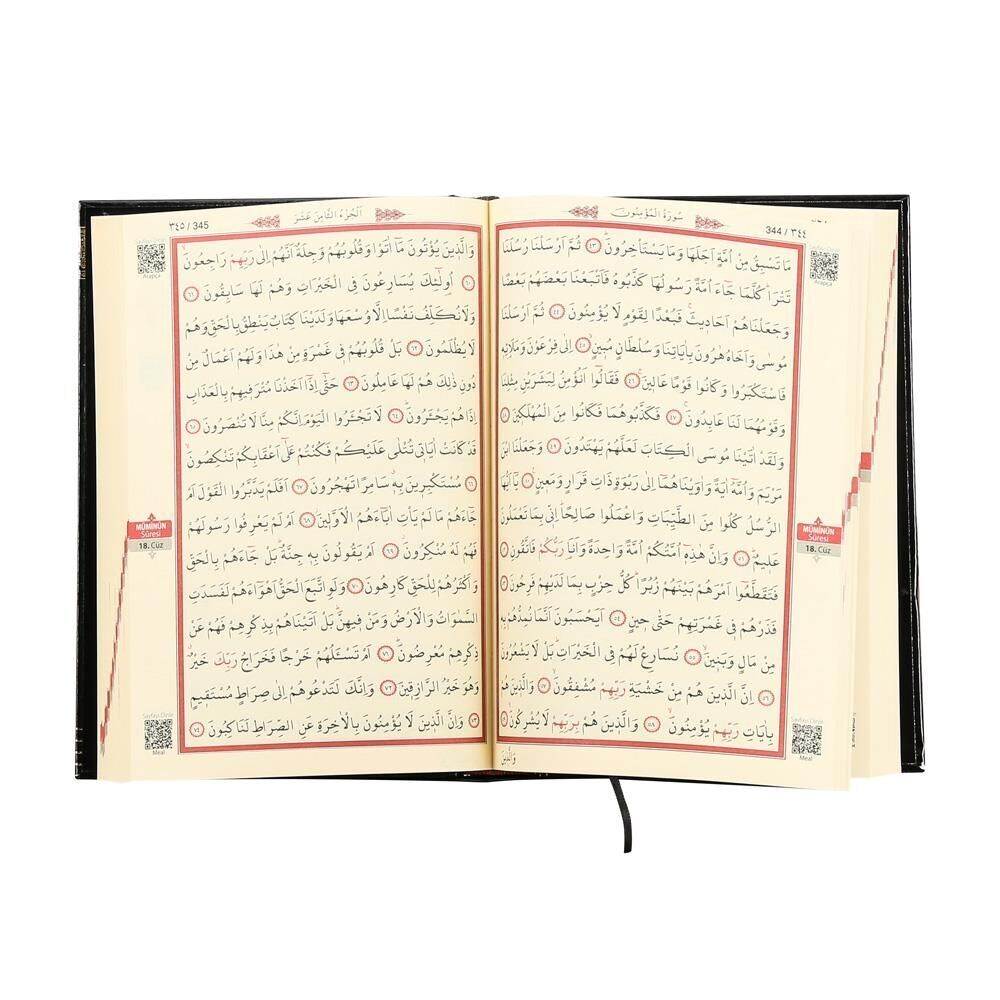 سُورَةُ الْمُؤْمِنُونَ
344 / ٣٤٤
Arapça
مَا تَسْبِقُ مِنْ اُمَّةٍ اَجَلَهَا وَمَا يَسْتَأْخِرُونَ ٤٣ ثُمَّ اَرْسَلْنَا رُسُلَنَا
تَتْرَا كُلَّمَا جَاءَ اُمَّةً رَسُولُهَا كَذَّبُوهُ فَاَتْبَعْنَا بَعْضَهُمْ بَعْضًا
وَجَعَلْنَاهُمْ اَحَادِيثَ فَبُعْدًا لِقَوْمٍ لَا يُؤْمِنُونَ ٤٤ ثُمَّ اَرْسَلْنَا
مُوسٰى وَاَخَاهُ هٰرُونَ بِاٰيَاتِنَا وَسُلْطَانٍ مُبِينٍ ٤٥ اِلٰى فِرْعَوْنَ وَمَلَائِهِ
فَاسْتَكْبَرُوا وَكَانُوا قَوْمًا عَالِينَ ٤٦ فَقَالُوا اَنُؤْمِنُ لِبَشَرَيْنِ مِثْلِنَا
وَقَوْمُهُمَا لَنَا عَابِدُونَ ٤٧ فَكَذَّبُوهُمَا فَكَانُوا مِنَ الْمُهْلَكِينَ
وَلَقَدْ اٰتَيْنَا مُوسَى الْكِتَابَ لَعَلَّهُمْ يَهْتَدُونَ ٤٩ وَجَعَلْنَا ابْنَ
مَرْيَمَ وَاُمَّهُ اٰيَةً وَاٰوَيْنَاهُمَا اِلٰى رَبْوَةٍ ذَاتِ قَرَارٍ وَمَعِينٍ يَا اَيُّهَا
الرُّسُلُ كُلُوا مِنَ الطَّيِّبَاتِ وَاعْمَلُوا صَالِحًا اِنِّي بِمَا تَعْمَلُونَ
عَلِيمٌ ٥١ وَاِنَّ هٰذِهِ اُمَّتُكُمْ اُمَّةً وَاحِدَةً وَاَنَا رَبُّكُمْ فَاتَّقُونِ
فَتَقَطَّعُوا اَمْرَهُمْ بَيْنَهُمْ زُبُرًا كُلُّ حِزْبٍ بِمَا لَدَيْهِمْ فَرِحُونَ
فَذَرْهُمْ فِي غَمْرَتِهِمْ حَتّٰى حِينٍ ٥٤ اَيَحْسَبُونَ اَنَّمَا نُمِدُّهُمْ بِهِ
مِنْ مَالٍ وَبَنِينَ ٥٥ نُسَارِعُ لَهُمْ فِي الْخَيْرَاتِ بَلْ لَا يَشْعُرُونَ
٥٦ اِنَّ الَّذِينَ هُمْ مِنْ خَشْيَةِ رَبِّهِمْ مُشْفِقُونَ ٥٧ وَالَّذِينَ هُمْ
بِاٰيَاتِ رَبِّهِمْ يُؤْمِنُونَ ٥٨ وَالَّذِينَ هُمْ بِرَبِّهِمْ لَا يُشْرِكُونَ
وَالَّذِينَ
MÜMİNÛN
Sûresi
18. Cüz
Sayfayı Dinle
Meal
اَلْجُزْءُ الثَّامِنَ عَشَرَ
٣٤٥ / 345
Arapça
وَالَّذِينَ يُؤْتُونَ مَا اٰتَوْا وَقُلُوبُهُمْ وَجِلَةٌ اَنَّهُمْ اِلٰى رَبِّهِمْ رَاجِعُونَ
٦٠ اُولٰئِكَ يُسَارِعُونَ فِي الْخَيْرَاتِ وَهُمْ لَهَا سَابِقُونَ ٦١
وَلَا نُكَلِّفُ نَفْسًا اِلَّا وُسْعَهَا وَلَدَيْنَا كِتَابٌ يَنْطِقُ بِالْحَقِّ وَهُمْ
لَا يُظْلَمُونَ ٦٢ بَلْ قُلُوبُهُمْ فِي غَمْرَةٍ مِنْ هٰذَا وَلَهُمْ اَعْمَالٌ مِنْ
دُونِ ذٰلِكَ هُمْ لَهَا عَامِلُونَ ٦٣ حَتّٰى اِذَا اَخَذْنَا مُتْرَفِيهِمْ بِالْعَذَابِ
اِذَا هُمْ يَجْـَٔرُونَ ٦٤ لَا تَجْـَٔرُوا الْيَوْمَ اِنَّكُمْ مِنَّا لَا تُنْصَرُونَ ٦٥
قَدْ كَانَتْ اٰيَاتِي تُتْلٰى عَلَيْكُمْ فَكُنْتُمْ عَلٰى اَعْقَابِكُمْ تَنْكِصُونَ
٦٦ مُسْتَكْبِرِينَ بِهِ سَامِرًا تَهْجُرُونَ ٦٧ اَفَلَمْ يَدَّبَّرُوا الْقَوْلَ اَمْ
جَاءَهُمْ مَا لَمْ يَأْتِ اٰبَاءَهُمُ الْاَوَّلِينَ ٦٨ اَمْ لَمْ يَعْرِفُوا رَسُولَهُمْ
فَهُمْ لَهُ مُنْكِرُونَ ٦٩ اَمْ يَقُولُونَ بِهِ جِنَّةٌ بَلْ جَاءَهُمْ بِالْحَقِّ
وَاَكْثَرُهُمْ لِلْحَقِّ كَارِهُونَ ٧٠ وَلَوِ اتَّبَعَ الْحَقُّ اَهْوَاءَهُمْ لَفَسَدَتِ
السَّمٰوَاتُ وَالْاَرْضُ وَمَنْ فِيهِنَّ بَلْ اَتَيْنَاهُمْ بِذِكْرِهِمْ فَهُمْ عَنْ
ذِكْرِهِمْ مُعْرِضُونَ ٧١ اَمْ تَسْـَٔلُهُمْ خَرْجًا فَخَرَاجُ رَبِّكَ خَيْرٌ
وَهُوَ خَيْرُ الرَّازِقِينَ ٧٢ وَاِنَّكَ لَتَدْعُوهُمْ اِلٰى صِرَاطٍ مُسْتَقِيمٍ
٧٣ وَاِنَّ الَّذِينَ لَا يُؤْمِنُونَ بِالْاٰخِرَةِ عَنِ الصِّرَاطِ لَنَاكِبُونَ ٧٤
MÜMİNÛN
Sûresi
18. Cüz
Sayfayı Dinle
Meal